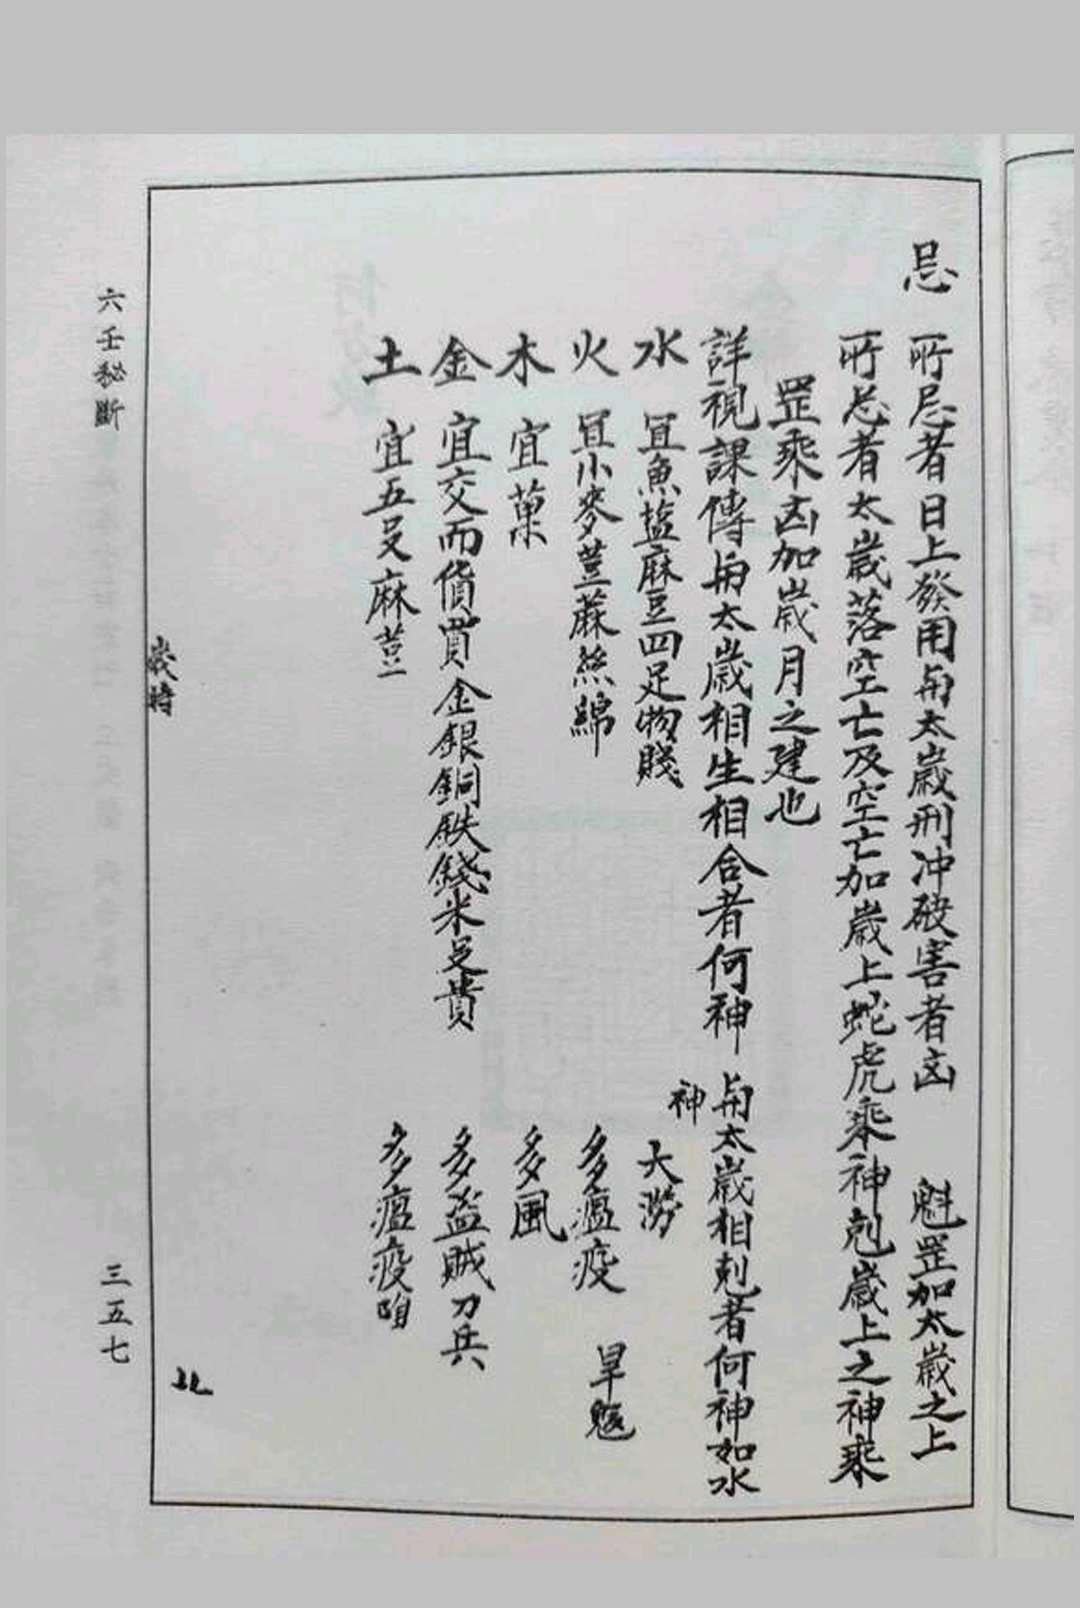 忌　所忌者日上發用與太歲刑冲破害者凶　魁罡加太歲之上
所忌者太歲落空亡及空亡加歲上蛇虎乘神剋歲上之神乘
罡乘凶加歲月之建也
詳視課傳與太歲相生相合者何神　與太歲相剋者何神如水
神
水　宜魚盐麻豆四足物賤　大澇
火　宜小麥荳蔴絲綿　多瘟疫　旱魃
木　宜菓　多風
金　宜交而貨買金銀銅鉄錢米豆貴　多盜賊刀兵
土　宜五豆麻荳　多瘟疫
歲時
六壬秘斷
三五七